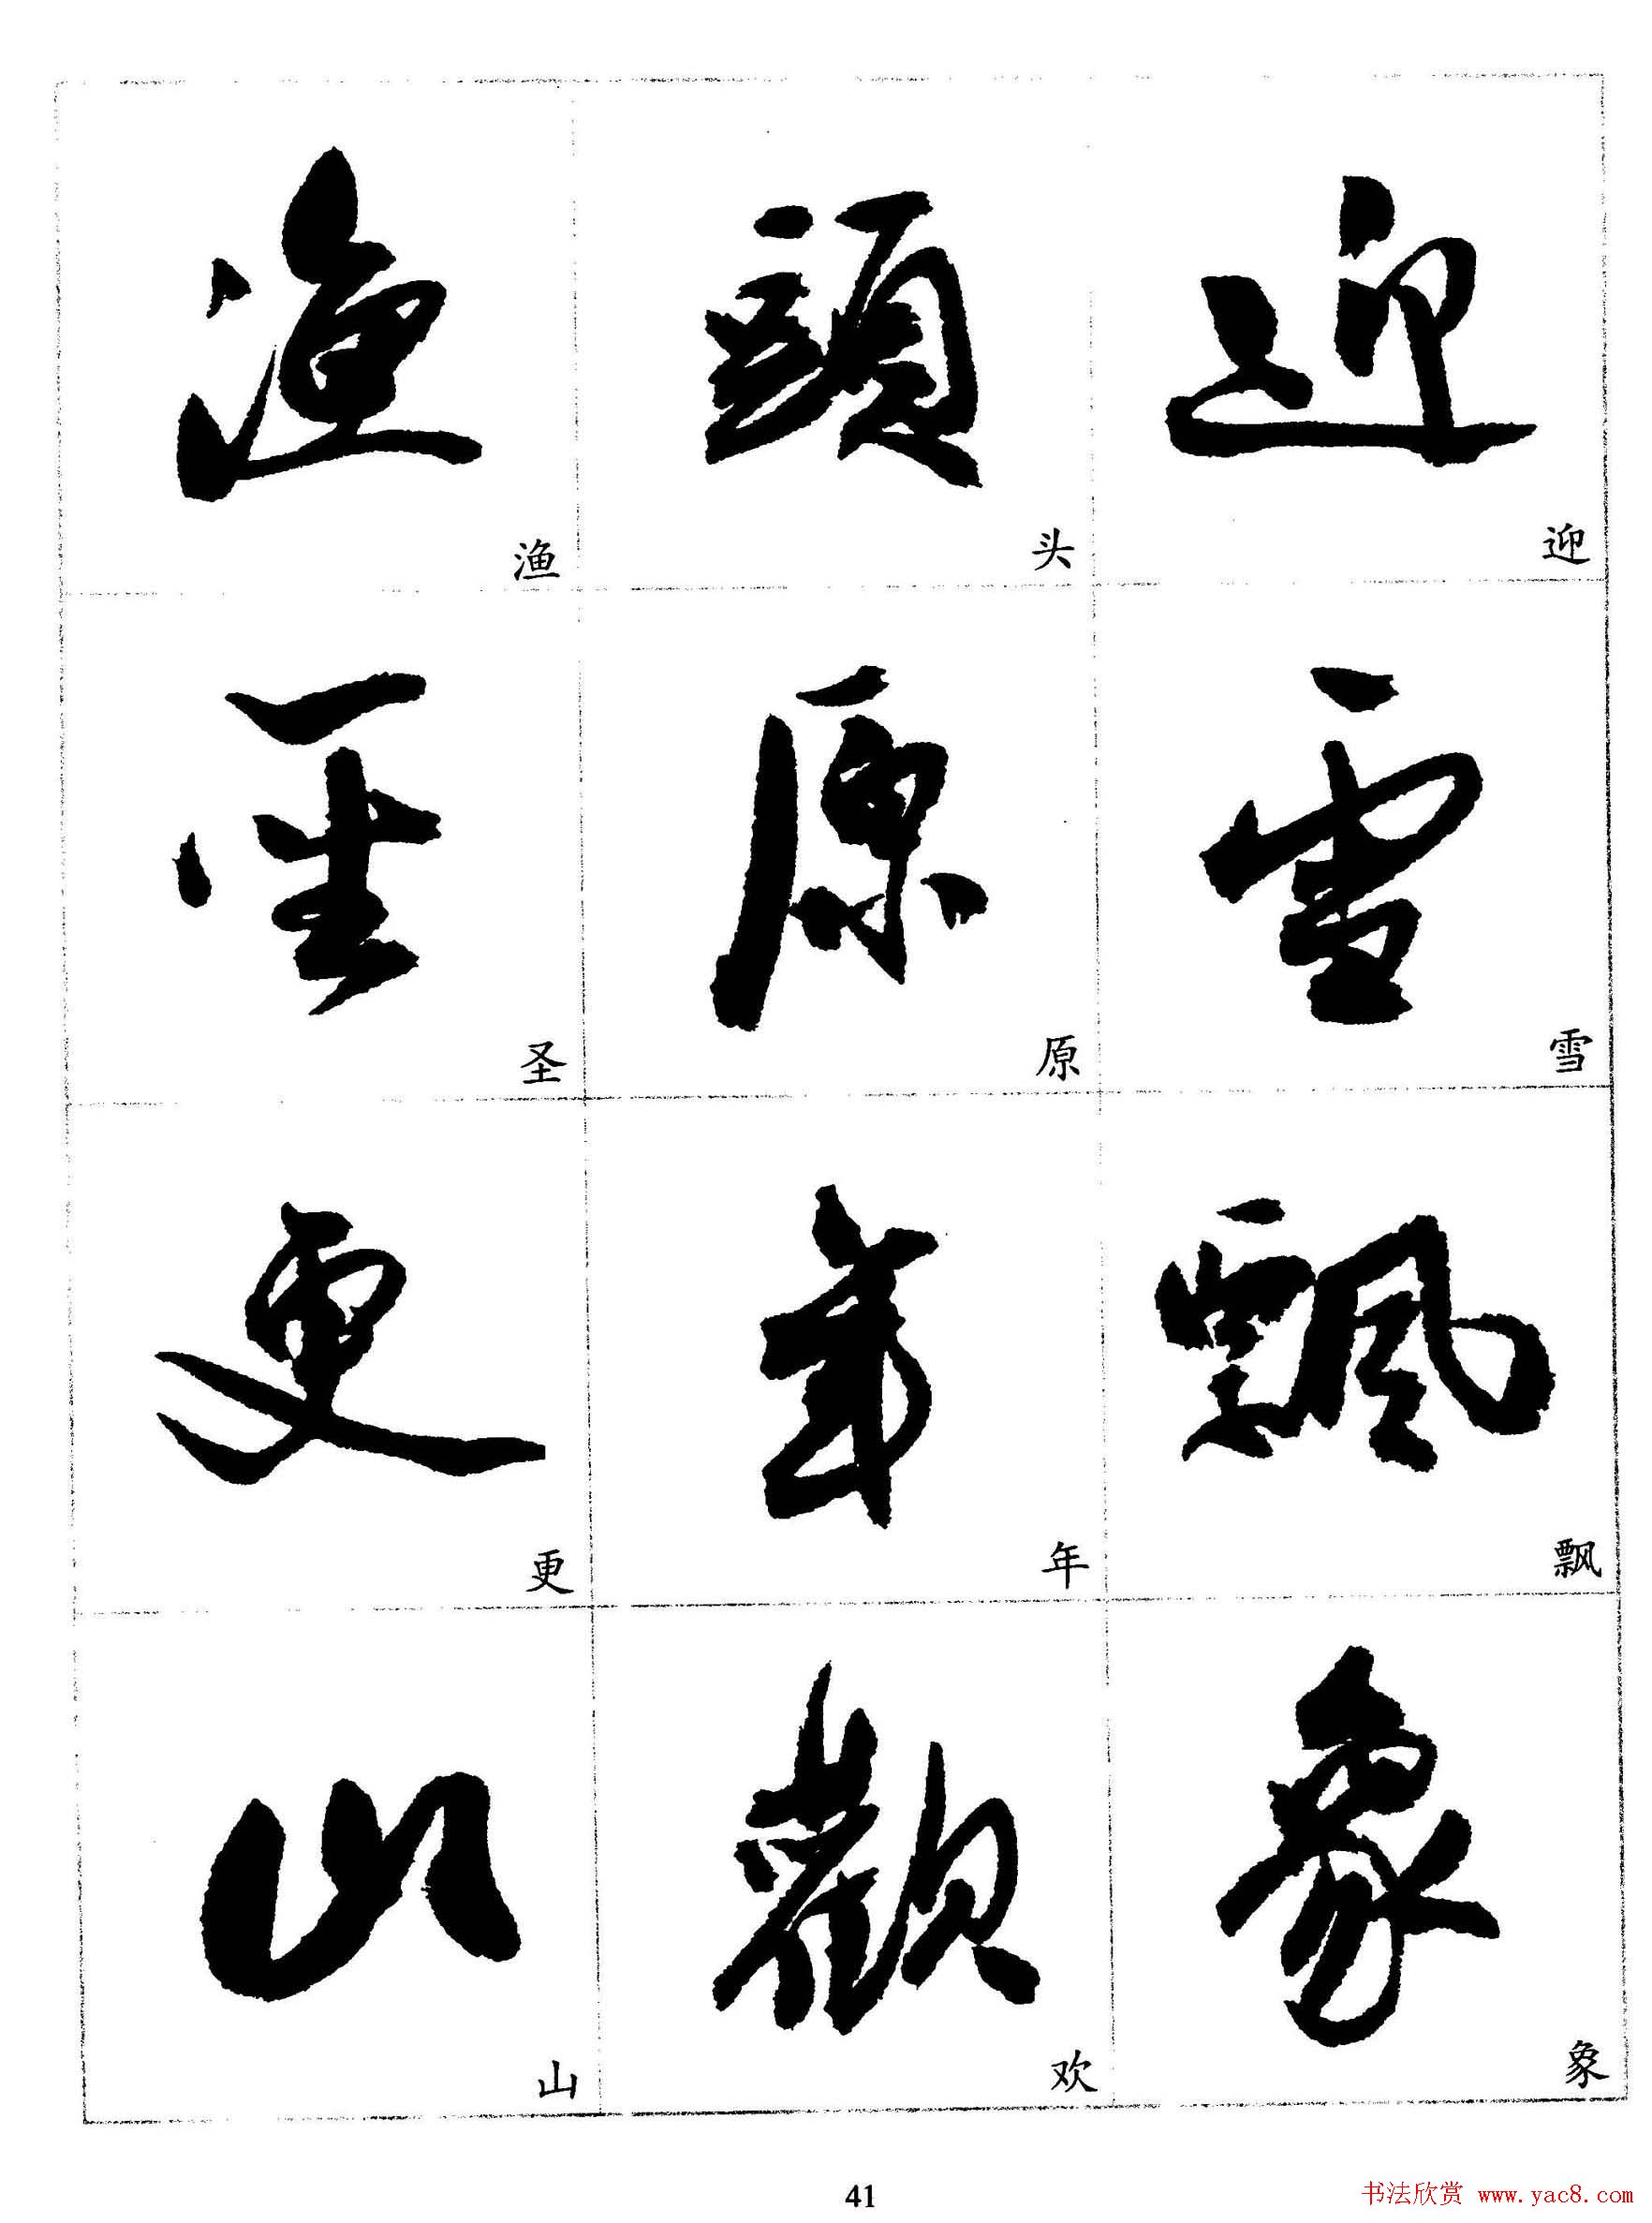 漁 頭 迎
渔 头 迎
聖 原 雪
圣 原 雪
更 年 飄
更 年 飘
山 觀 象
山 欢 象
41
书法欣赏 www.yac8.com